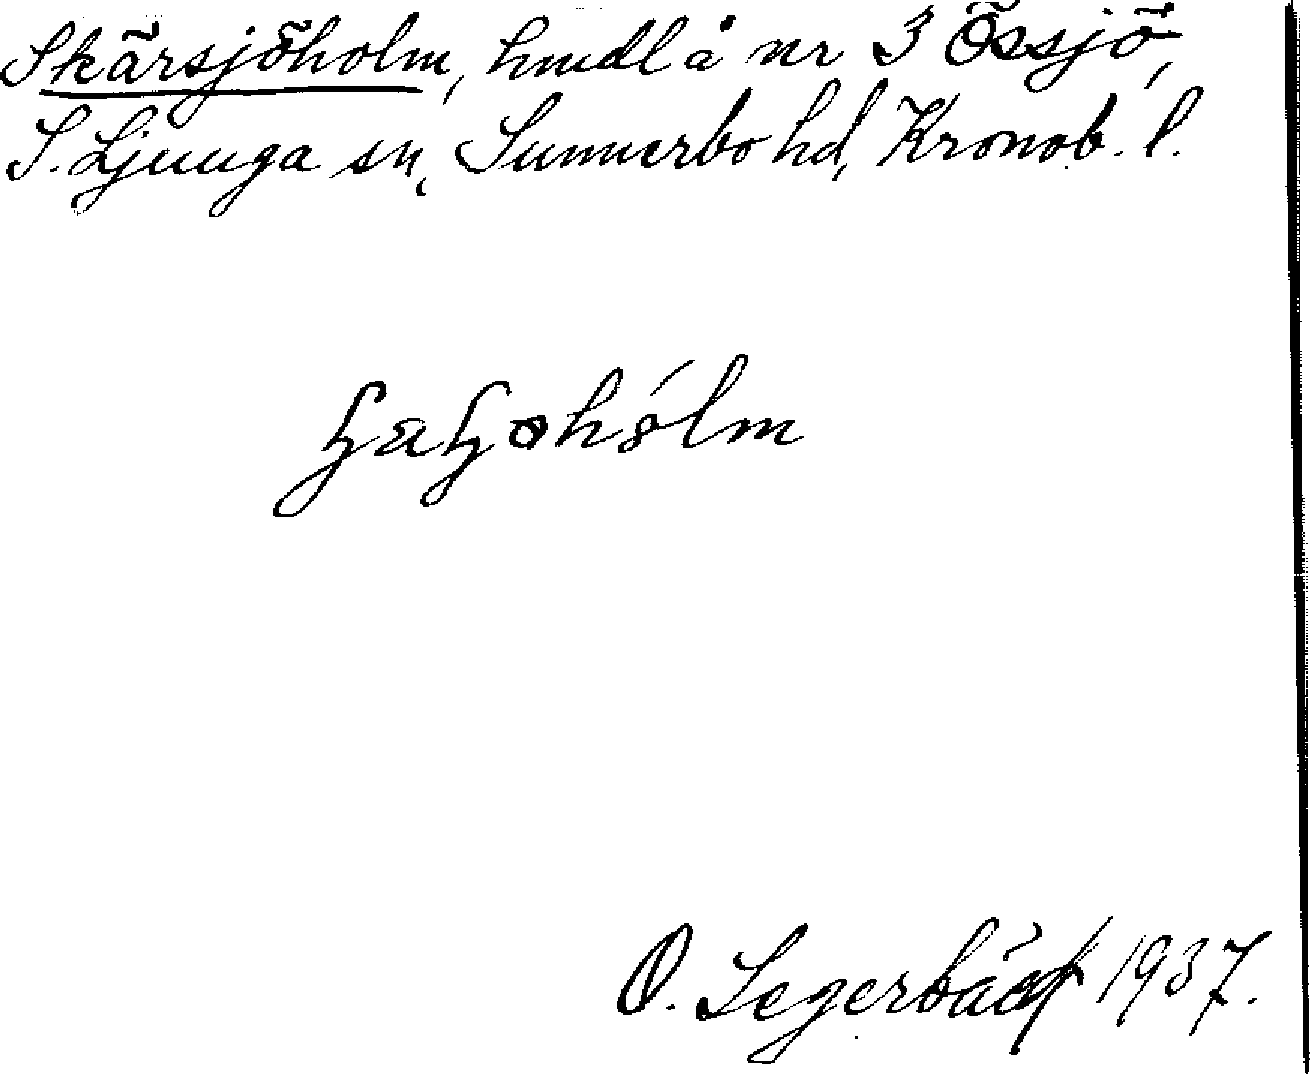 Skärsjöholm, hmdl å nr 3 Össjö,
S. Ljunga sn, Sunnerbo hd, Kronob. l.
ɧäɧøhólm
O. Segerbäck 1937.